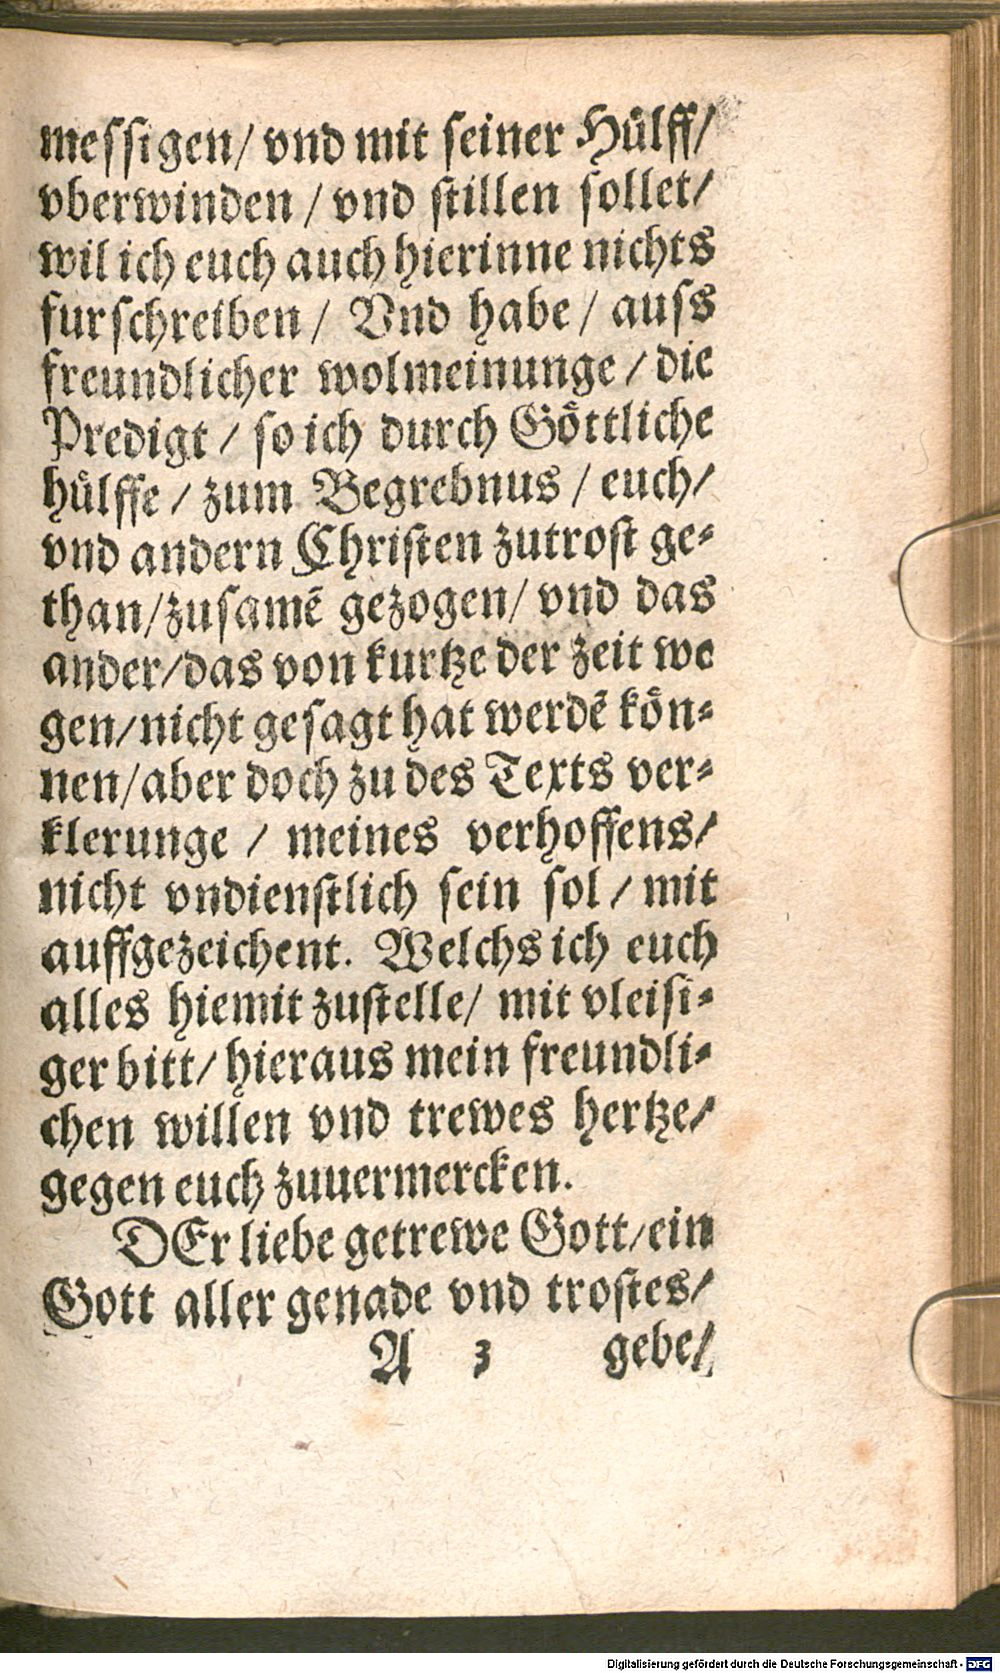 messigen/ vnd mit seiner Huͤlff/
vberwinden / vnd stillen sollet/
wil ich euch auch hierinne nichts
furschreiben / Vnd habe / auss
freundlicher wolmeinunge / die
Predigt / so ich durch Goͤttliche
huͤlffe / zum Begrebnus / euch/
vnd andern Christen zutrost ge⸗
than/zusamẽ gezogen/ vnd das
ander/das von kurtze der zeit we
gen/nicht gesagt hat werdẽ koͤn⸗
nen/aber doch zu des Texts ver⸗
klerunge / meines verhoffens/
nicht vndienstlich sein sol / mit
auffgezeichent. Welchs ich euch
alles hiemit zustelle/ mit vleisi⸗
ger bitt/ hieraus mein freundli⸗
chen willen vnd trewes hertze/
gegen euch zuuermercken.
DEr liebe getrewe Gott/ein
Gott aller genade vnd trostes/
A 3 gebe/
Digitalisierung gefördert durch die Deutsche Forschungsgemeinschaft - DFG